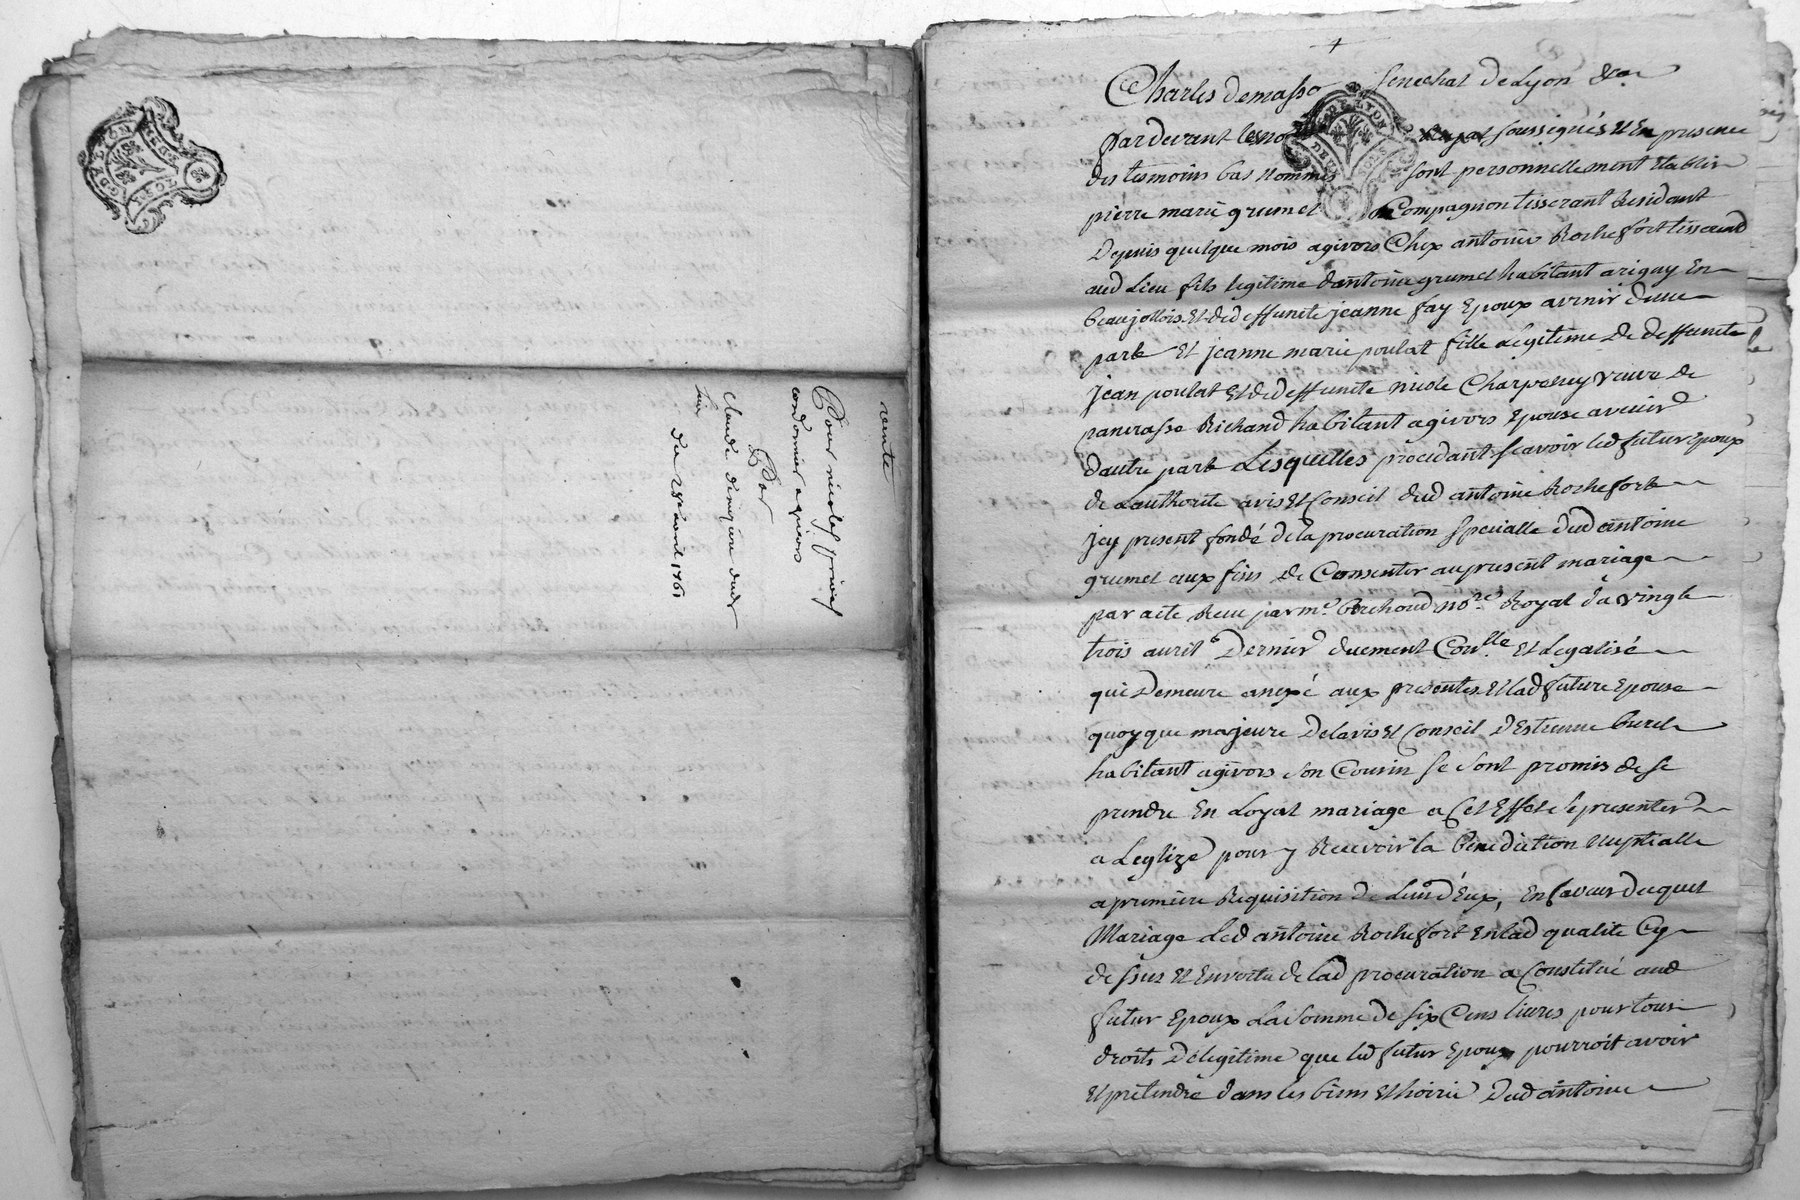 GDE LYON
DEUX SOLS
vente
Pour nicolas
cordonnier a givors
Par
Claude
du 28e avril 1761
Charles demasso senechal de Lyon &a
pardevant les no Royal soussignés et En presence
des tesmoins bas nommés sont personnellement Establis
pierre marie grumel Compagnon tisserant Residant
Depuis quelque mois agivors Chez antoine Rochefort tisserand
aud Lieu fils legitime dantoine grumel habitant arigny En
beaujollois Et de deffunte jeanne fay Epoux avenir dune
part Et jeanne marie poulat fille Legitime de deffunte
jean poulat Et de deffunte nicole Charpenay veuve de
pancrasse Richand habitant agivors Epouse avenir
dautre part Lesquelles procedant scavoir led futur Epoux
de Lauthorite avis Et Conseil dud antoine Rochefort
jcy present fondé de la procuration specialle dud antoine
grumel aux fins de Consentir au present mariage
par acte Receu par me. Brechoud nore. Royal da vingt
trois avril Dernier duement Conlle Et Legalisé
qui Demeure anexé aux presentes Et lad future Epouse
quoyque majeure Delavis Et Conseil dEstienne burel
habitant agivors son Cousin se sont promis de se
prendre En Loyal mariage a Cet Effet se presenter
a Leglize pour y Recevoir la benediction Nuptialle
apremiere Requisition de Lun dEux, En faveur duquel
Mariage Led antoine Rochefort En lad qualite Cy
dessus Et En vertu de lad procuration a Constitué aud
futur Epoux La somme de six Cens livres pour tous
droits De legitime que led futur Epoux pourroit avoir
Et pretendre dans les biens Et hoirie Dud antoine